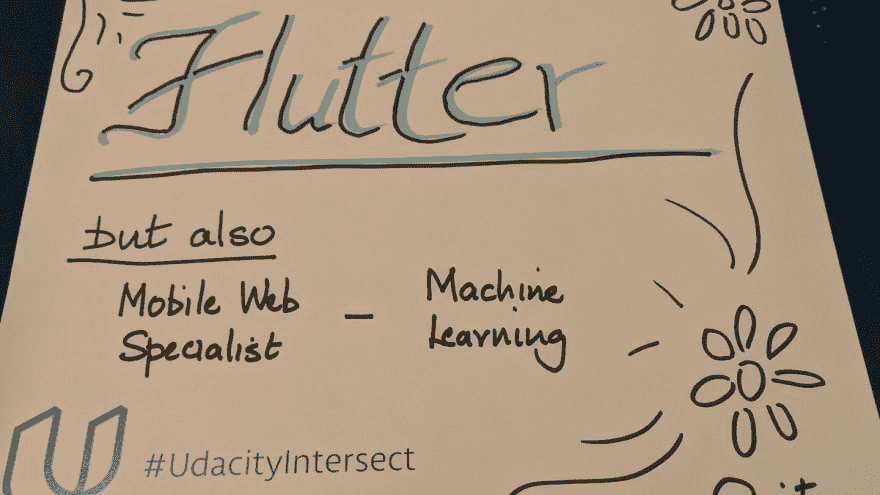 Flutter
but also
Mobile Web
Specialist
-
Machine
Learning
#UdacityIntersect